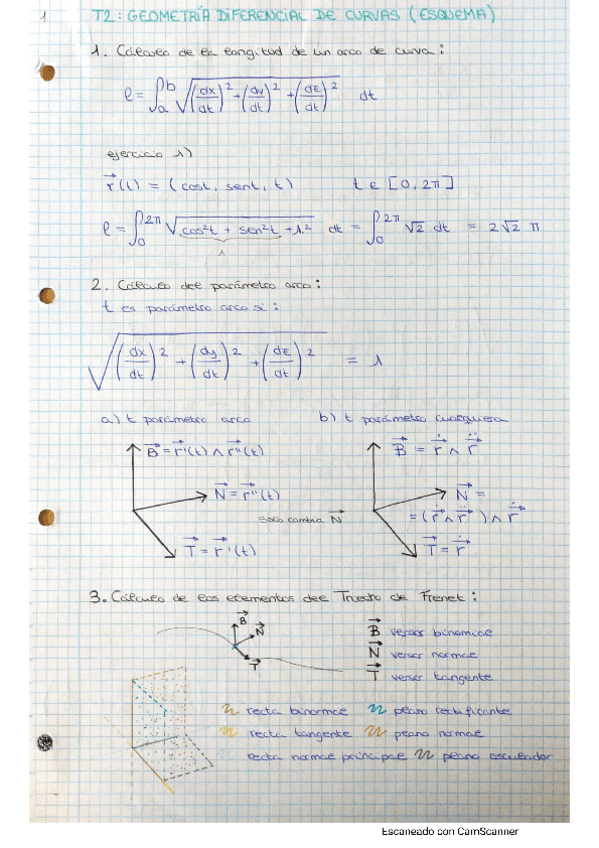 1 T2: GEOMETRÍA DIFERENCIAL DE CURVAS (ESQUEMA)
1. Cálculo de la longitud de un arco de curva:
ℓ = ∫_a^b √((dx/dt)² + (dy/dt)² + (dz/dt)²) dt
ejercicio 1)
r⃗(t) = (cost, sent, t) t ∈ [0, 2π]
ℓ = ∫_0^{2π} √(cos²t + sen²t + 1²) dt = ∫_0^{2π} √2 dt = 2√2 π
1
2. Cálculo del parámetro arco:
t es parámetro arco si:
√((dx/dt)² + (dy/dt)² + (dz/dt)²) = 1
a) t parámetro arco b) t parámetro cualquiera
B⃗ = r⃗'(t) ∧ r⃗''(t) B⃗ = ṙ⃗ ∧ r̈⃗
N⃗ = r⃗''(t) N⃗ =
solo cambia N⃗ = (ṙ⃗ ∧ r̈⃗) ∧ ṙ⃗
T⃗ = r⃗'(t) T⃗ = ṙ⃗
3. Cálculo de los elementos del Triedro de Frenet:
B⃗ N⃗ T⃗
B⃗ versor binormal
N⃗ versor normal
T⃗ versor tangente
recta binormal plano rectificante
recta tangente plano normal
recta normal principal plano osculador
Escaneado con CamScanner